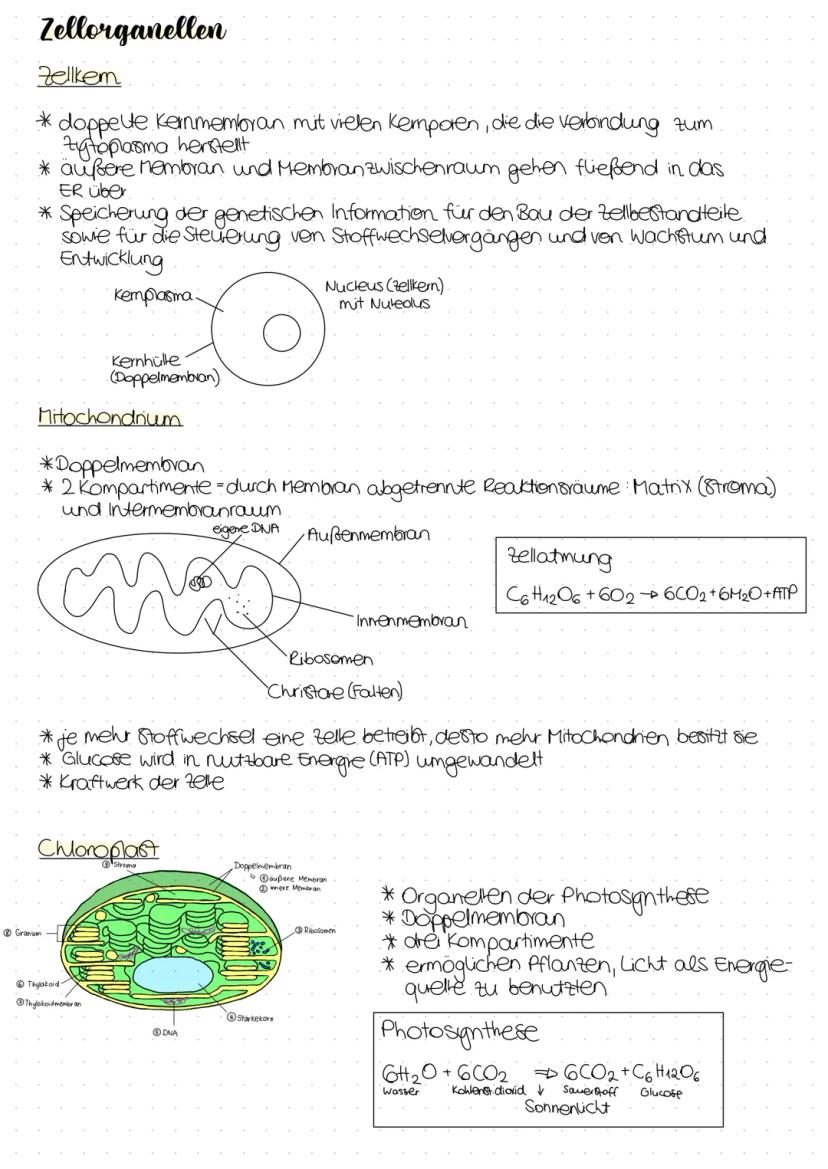 Zellorganellen
Zellkern
* doppelte Kernmembran mit vielen Kernporen, die die Verbindung zum
Zytoplasma herstellt
* äußere Membran und Membranzwischenraum gehen fließend in das
ER über
* Speicherung der genetischen Information für den Bau der Zellbestandteile
sowie für die Steuerung von Stoffwechselvorgängen und von Wachstum und
Entwicklung
Kernplasma
Nucleus (Zellkern)
mit Nuleolus
Kernhülle
(Doppelmembran)
Mitochondrium
* Doppelmembran
* 2 Kompartimente = durch Membran abgetrennte Reaktionsräume: Matrix (Stroma)
und Intermembranraum
eigene DNA
Außenmembran
Zellatmung
C6H12O6 + 6O2 → 6CO2 + 6H2O + ATP
Innenmembran
Ribosomen
Christae (Falten)
* je mehr Stoffwechsel eine Zelle betreibt, desto mehr Mitochondrien besitzt sie
* Glucose wird in nutzbare Energie (ATP) umgewandelt
* Kraftwerk der Zelle
Chloroplast
⑨ Stroma
Doppelmembran
↳ ① äußere Membran
② innere Membran
⑧ Granum
③ Ribosomen
⑥ Thylakoid
⑦ Thylakoidmembran
④ Stärkekorn
⑤ DNA
* Organellen der Photosynthese
* Doppelmembran
* drei Kompartimente
* ermöglichen Pflanzen, Licht als Energie-
quelle zu benutzten
Photosynthese
6H2O + 6CO2 ⇒ 6CO2 + C6H12O6
Wasser Kohlenst.dioxid ↓ Sauerstoff Glucose
Sonnenlicht